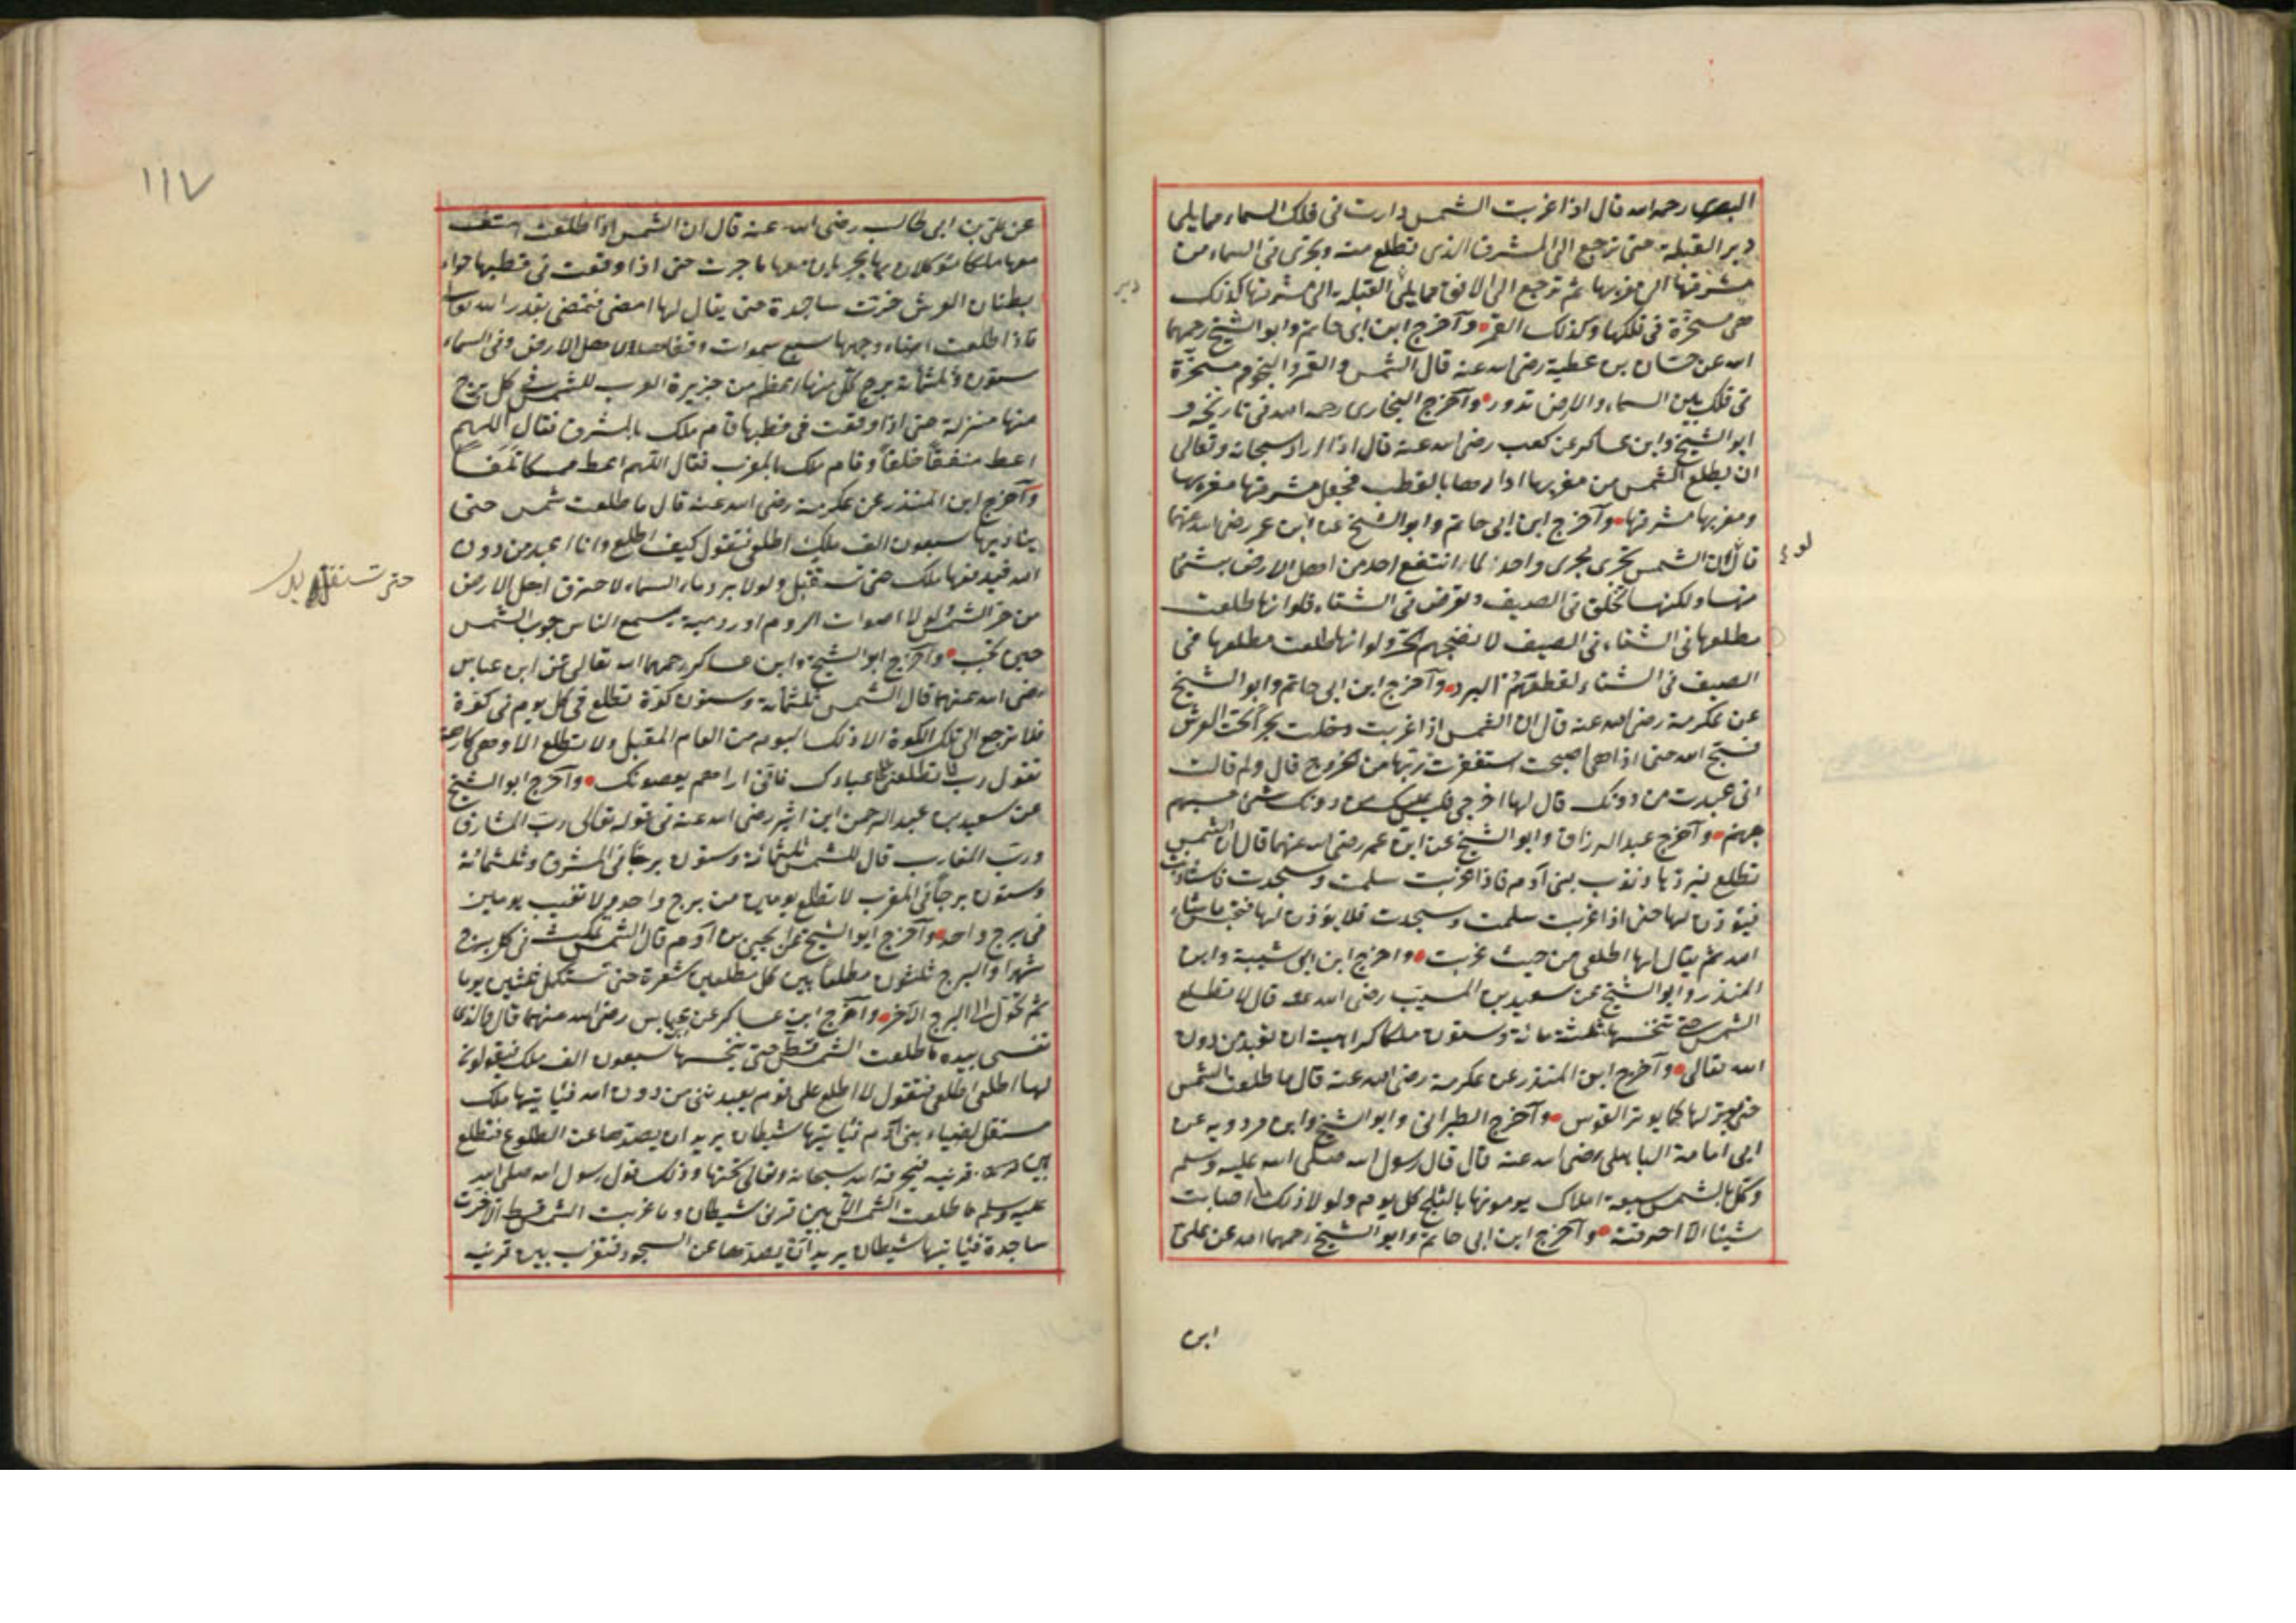 البصري رحمه الله قال اذا غربت الشمس دارت فى فلك السماء مما يلى
دبر القبلة حتى ترجع الى المشرق الذى تطلع منه وتجرى فى السماء من
مشرقها الى مغربها ثم ترجع الى الافق مما يلى القبلة الى مشرقها كذلك
دبر
هى مسخرة فى فلكها وكذلك القمر وآخرج ابن ابى حاتم وابو الشيخ رحمهما
الله عن حسان بن عطية رضى الله عنه قال الشمس والقمر والنجوم مسخرة
فى فلك بين السماء والارض تدور وآخرج البخارى رحمه الله فى تاريخه و
ابو الشيخ وابن عساكر عن كعب رضى الله عنه قال اذا اراد سبحانه وتعالى
ان يطلع الشمس من مغربها ادارها بالقطب فجعل مشرقها مغربها
ومغربها مشرقها وآخرج ابن ابى حاتم وابو الشيخ عن ابن عمر رضى الله عنهما
قال ان الشمس تجرى مجرى واحدا لما انتفع احد من اهل الارض بشئ
منها ولكنها تحلق فى الصيف وتعرض فى الشتاء فلو انها طلعت
مطلعها فى الشتاء فى الصيف لانضجهم الحر ولو انها طلعت مطلعها فى
الصيف فى الشتاء لقطعهم البرد وآخرج ابن ابى حاتم وابو الشيخ
عن عكرمة رضى الله عنه قال ان الشمس اذا غربت دخلت بحرا تحت العرش
فتسبح الله حتى اذا هى اصبحت استعفرت ربها من الخروج قال ولم قالت
انى عبدت من دونك قال لها اخرجى فليس عليك من دونك شئ حسبهم
جهنم وآخرج عبد الرزاق وابو الشيخ عن ابن عمر رضى الله عنهما قال ان الشمس
تطلع فيردها ذنوب بنى آدم فاذا غربت سلمت وسجدت فاستأذنت
فيؤذن لها حتى اذا غربت سلمت وسجدت فلا يؤذن لها فتحبس ما شاء
الله ثم يقال لها اطلعى من حيث غربت واخرج ابن ابى شيبة وابن
المنذر وابو الشيخ عن سعيد بن المسيب رضى الله عنه قال لا تطلع
الشمس حتى تنخسها ثلثة مائة وستون ملكا كراهية ان تعبد من دون
الله تعالى وآخرج ابن المنذر عن عكرمة رضى الله عنه قال ما طلعت الشمس
حتى يوتر لها كما يوتر القوس وآخرج الطبرانى وابو الشيخ وابن مردويه عن
ابى امامة الباهلى رضى الله عنه قال قال رسول الله صلى الله عليه وسلم
وكل بالشمس سبعة املاك يرمونها بالثلج كل يوم ولولا ذلك ما اصابت
شيئا الا احرقته وآخرج ابن ابى حاتم وابو الشيخ رحمهما الله عن على
ابن
١١٧
عن على بن ابى طالب رضى الله عنه قال ان الشمس اذا طلعت
معها ملكا موكلان بها يجريان معها ما جرت حتى اذا وقعت فى قطبها حذاء
بطنان العرش خرت ساجدة حتى يقال لها امضى فتمضى بقدر الله تعالى
فاذا طلعت اضاء وجهها سبع سموات وقفاها لاهل الارض وفى السماء
ستون وثلثمائة برج كل منها اعظم من جزيرة العرب للشمس فى كل برج
منها منزلة حتى اذا وقعت فى قطبها قام ملك بالمشرق فقال اللهم
اعط منفقا خلفا وقام ملك بالمغرب فقال اللهم اعط ممسكا تلفا
وآخرج ابن المنذر عن عكرمة رضى الله عنه قال ما طلعت شمس حتى
يناديها سبعون الف ملك اطلعى فتقول كيف اطلع وانا اعبد من دون
الله فيدفعها ملك حتى تستقبل ولولا برد ماء السماء لاحترق اهل الارض
حتى تستقل
من حر الشمس لولا اصوات الروم او رومية يسمع الناس وجوب الشمس
حين تجب وآخرج ابو الشيخ وابن عساكر رحمهما الله تعالى عن ابن عباس
رضى الله عنهما قال الشمس ثلثمائة وستون كوة تطلع فى كل يوم فى كوة
فلا ترجع الى تلك الكوة الا ذلك اليوم من العام المقبل ولا تطلع الا وهى كارهة
تقول رب لا تطلعنى على عبادك فانى اراهم يعصونك وآخرج ابو الشيخ
عن سعيد بن عبد الرحمن ابن رضى الله عنه فى قوله تعالى رب المشارق
ورب المغارب قال للشمس ثلثمائة وستون برجا فى المشرق وثلثمائة
وستون برجا فى المغرب لا تطلع يومين من برج واحد ولا تغيب يومين
فى برج واحد وآخرج ابو الشيخ عن يحيى بن آدم قال الشمس تمكث فى كل برج
شهرا والبرج ثلثون مطلعا بين كل مطلعين شعرة حتى تستكمل ثلثين يوما
ثم تحول الى البرج الآخر وآخرج ابن عساكر عن ابن عباس رضى الله عنهما قال والذى
نفسى بيده ما طلعت الشمس قط حتى ينخسها سبعون الف ملك فيقولون
لها اطلعى اطلعى فتقول لا اطلع على قوم يعبدوننى من دون الله فيأتيها ملك
مستقل لضياء بنى آدم فيأتيها شيطان يريد ان يصدها عن الطلوع فتطلع
بين قرنيه فيحرقه الله سبحانه وتعالى تحتها وذلك قول رسول الله صلى الله
عليه وسلم ما طلعت الشمس الا بين قرنى شيطان وما غربت الشمس قط الا خرت
ساجدة فيأتيها شيطان يريد ان يصدها عن السجود فتغرب بين قرنيه